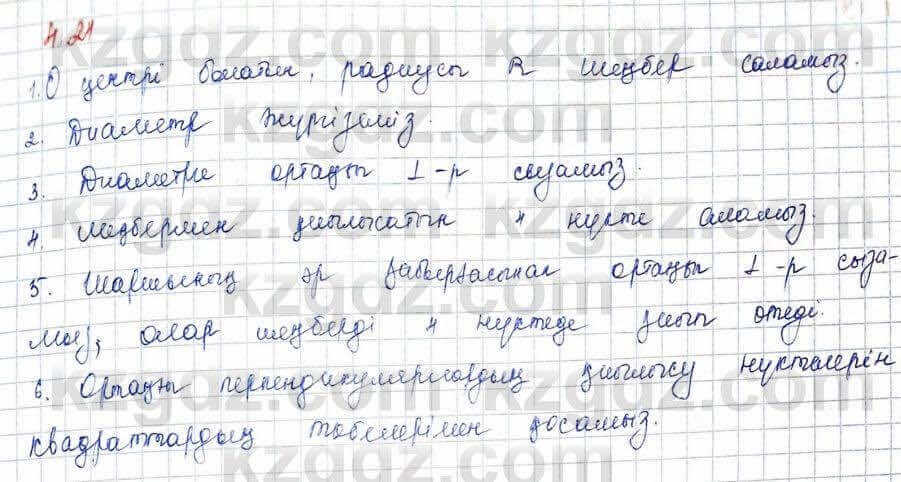 4.21
1. О центрі болатын, радиусы R шеңбер саламыз.
2. Диаметр жүргіземіз.
3. Диаметрге ортаңғы ⊥-р сызамыз.
4. Шеңбермен қиылысатын 4 нүкте аламыз.
5. Шаршының әр қабырғасынан ортаңғы ⊥-р сыза-
мыз, олар шеңберді 4 нүктеде қиып өтеді.
6. Ортаңғы перпендикулярлардың қиылысу нүктелерін
квадраттардың төбелерімен қосамыз.
kzgdz.com kzgdz.com